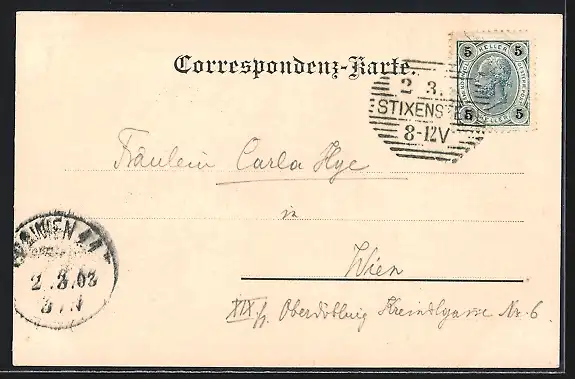 Correspondenz-Karte.
5 HELLER 5
5 HELLER 5
2 3.
STIXENST
8-12V
Fräulein Carla Hye
in
Wien
XIX/1. Oberdöbling Kreindlgasse Nr. 6
WIEN
2.3.03